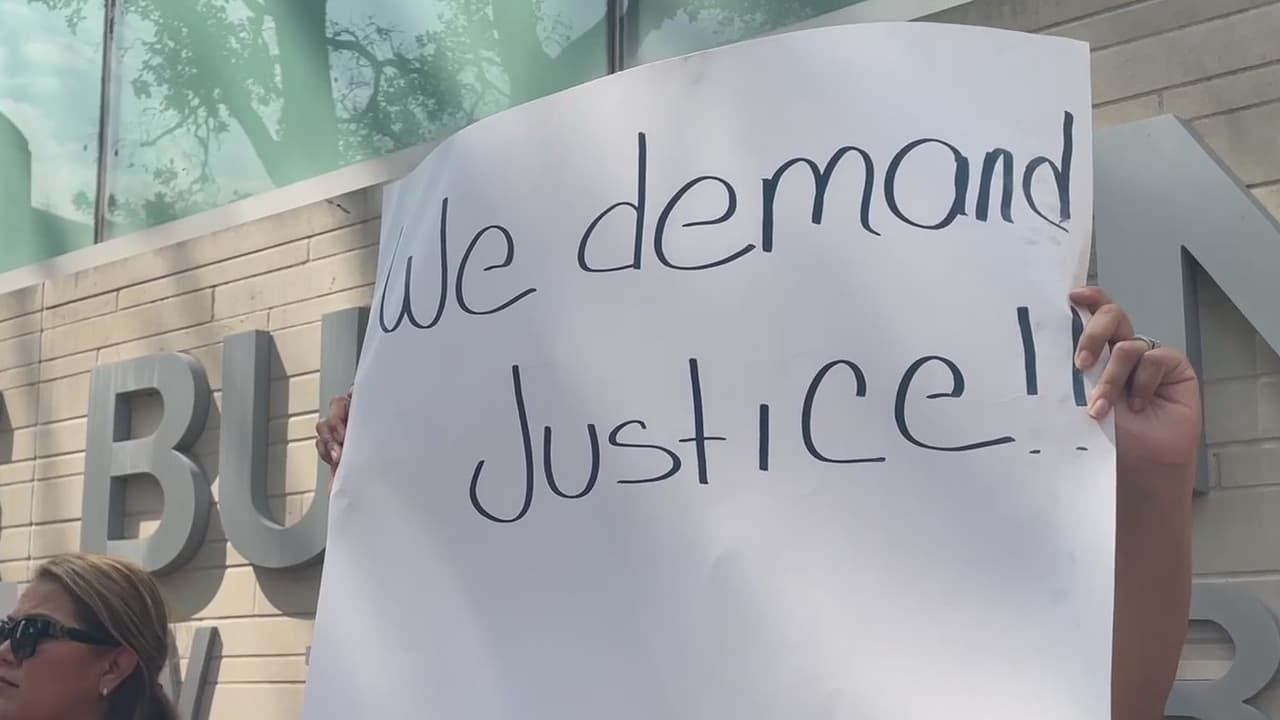 We demand
Justice!!
BU